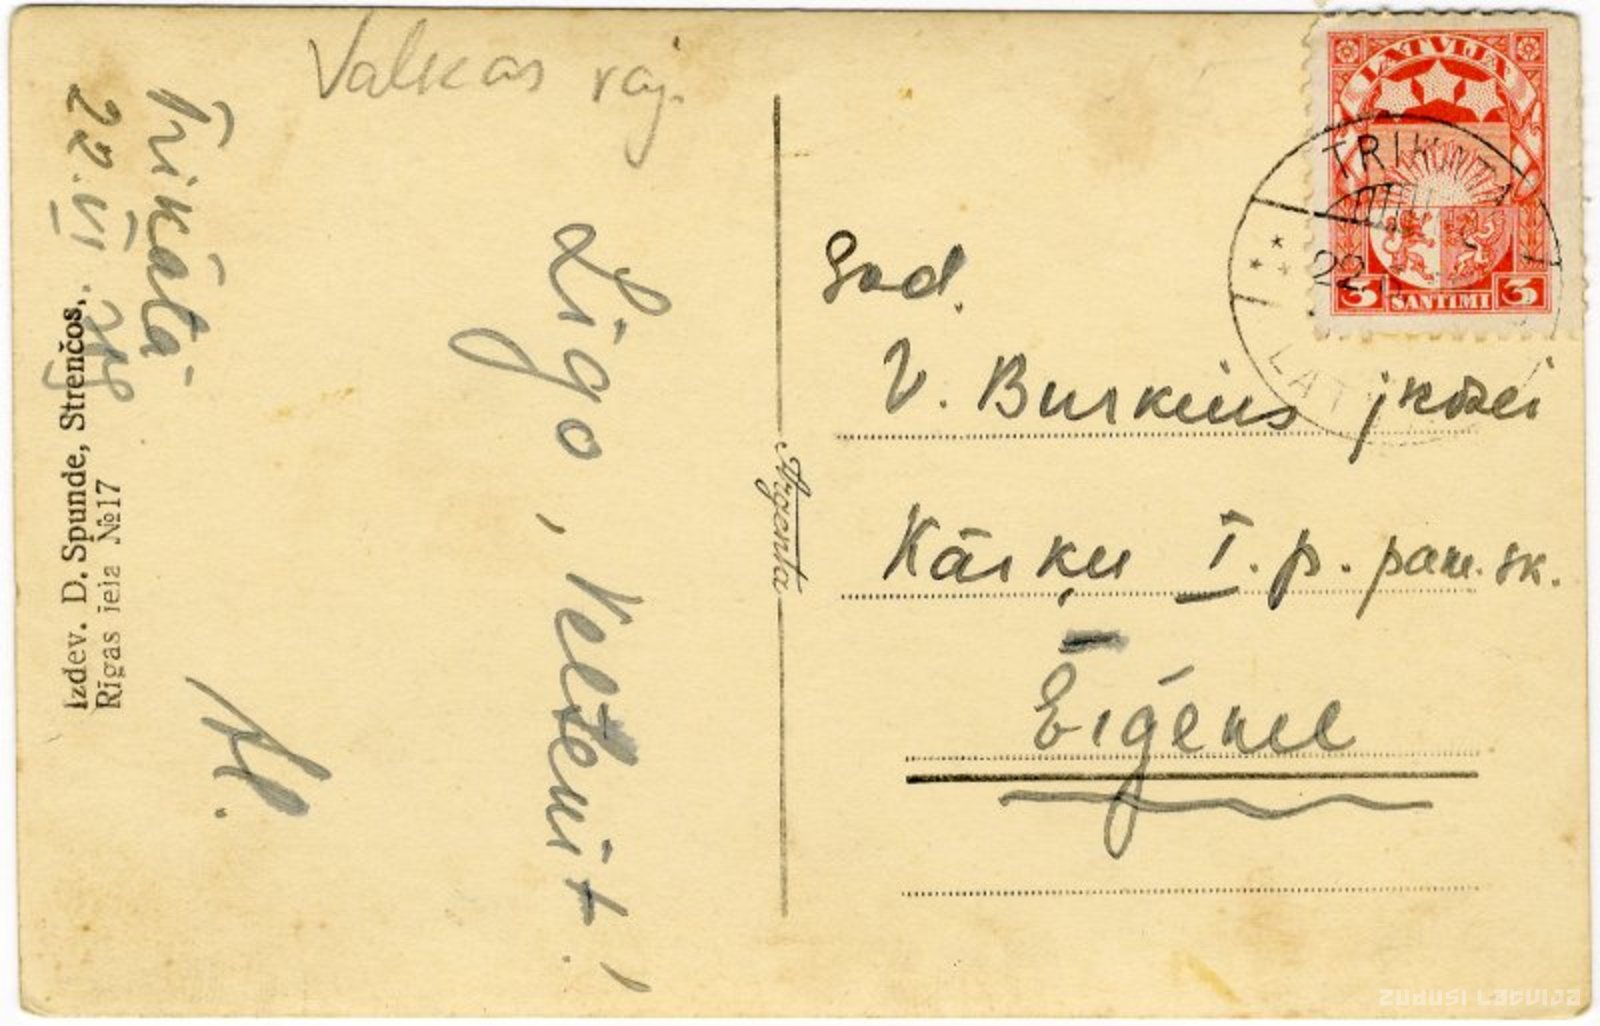 Valkas raj.
Trikātā
22. VI
Līgo, Veltenīt!
Izdev. D. Spunde, Strenčos,
Rīgas ielā №17
Argenta
LATVIJA
3 SANTIMI 3
TRIKATA
22
LAT
God.
V. Burkius jkdzei
Kārķu I. p. pam. sk.
Ēģēnē
zudusi Latvija